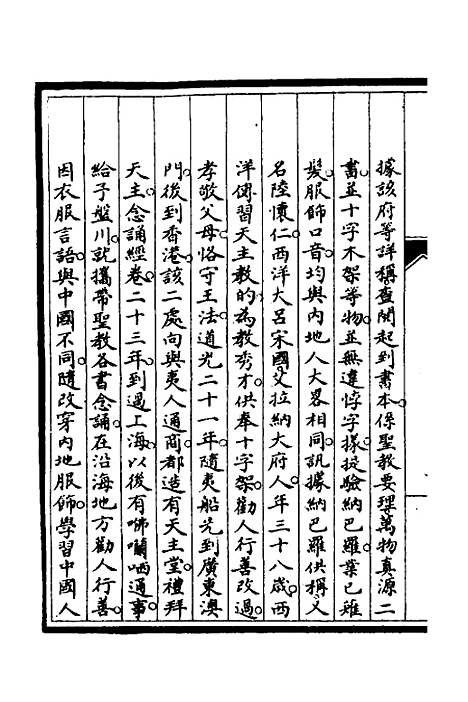 據該府等詳稱查閱起到書本係聖教要理萬物真源二
書並十字木架等物並無違悖字樣提驗納巴羅業已薙
髮服飾口音均與內地人大畧相同訊據納巴羅供稱又
名陸懷仁西洋大呂宋國义拉納大府人年三十八歲西
洋傳習天主教的為教秀才供奉十字架勸人行善改過
孝敬父母恪守王法道光二十一年隨夷船先到廣東澳
門後到香港該二處向與夷人通商都造有天主堂禮拜
天主念誦經卷二十三年到過上海以後有咈囒哂通事
給予盤川就攜帶聖教各書念誦在沿海地方勸人行善
因衣服言語與中國不同隨改穿內地服飾學習中國人